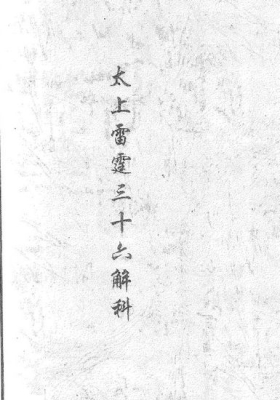 太上雷霆三十六解科